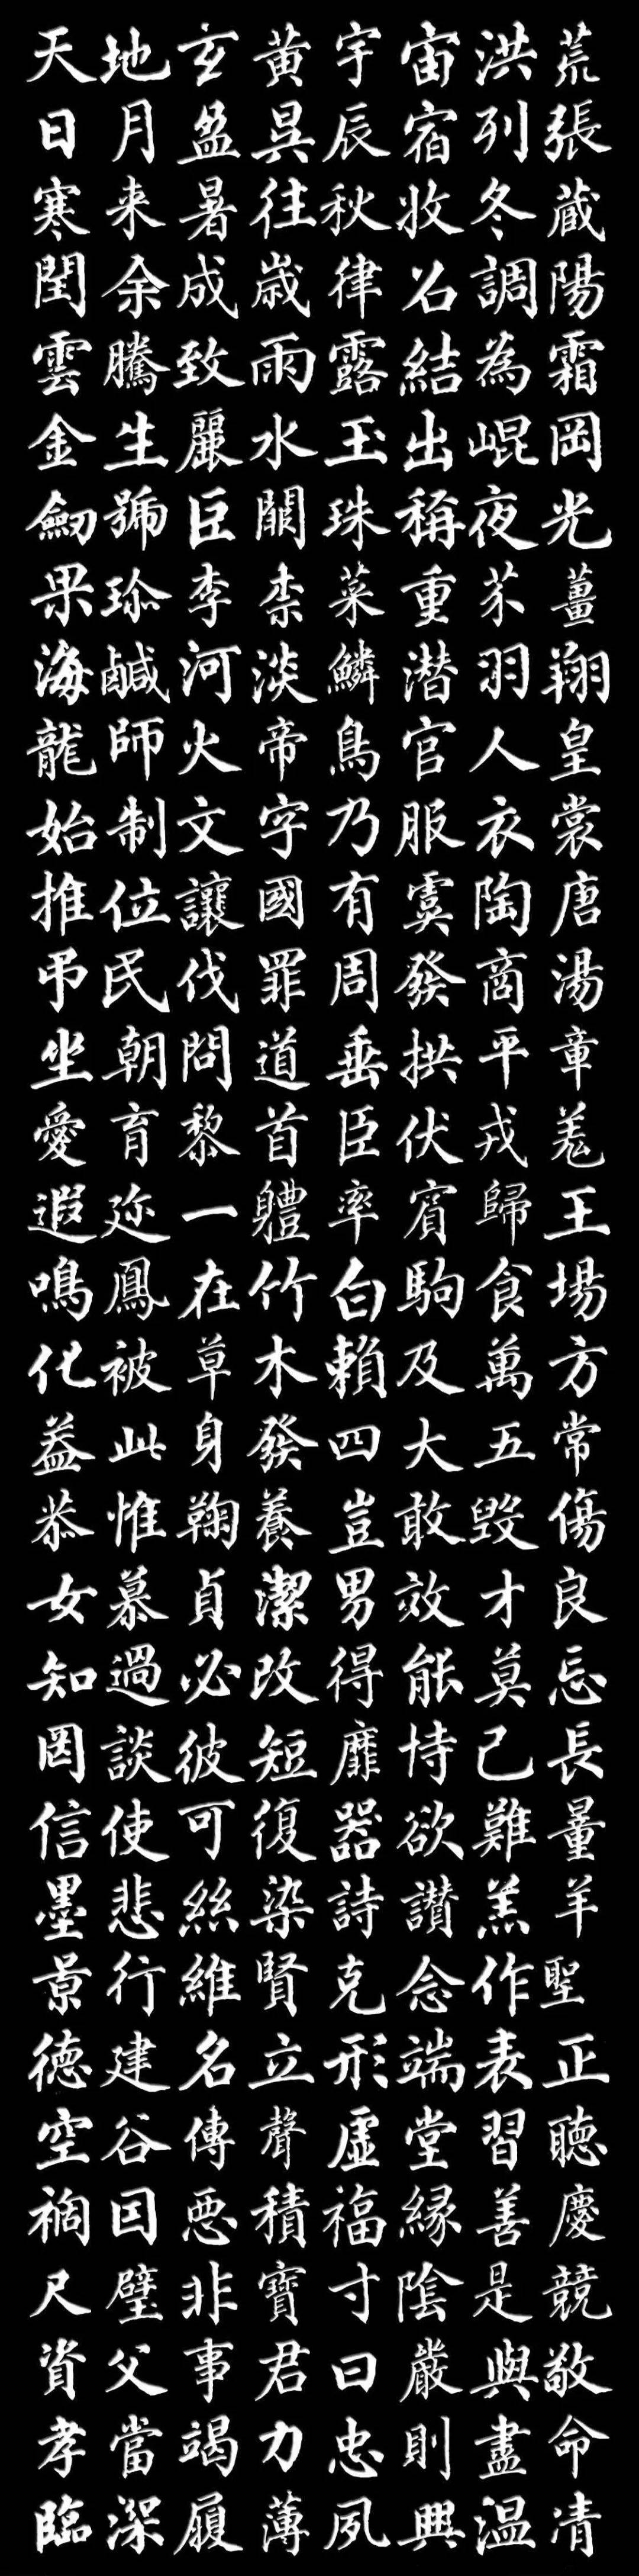 天地玄黄宇宙洪荒
日月盈昃辰宿列張
寒来暑往秋收冬蔵
閏余成歳律召調陽
雲騰致雨露結為霜
金生麗水玉出崐岡
劒號巨闕珠稱夜光
果珎李柰菜重芥薑
海鹹河淡鱗潜羽翔
龍師火帝鳥官人皇
始制文字乃服衣裳
推位讓國有虞陶唐
弔民伐罪周發商湯
坐朝問道垂拱平章
愛育黎首臣伏戎羗
遐迩一軆率賓歸王
鳴鳳在竹白駒食場
化被草木賴及萬方
盖此身發四大五常
恭惟鞠養豈敢毀傷
女慕貞潔男效才良
知過必改得能莫忘
罔談彼短靡恃己長
信使可復器欲難量
墨悲絲染詩讃羔羊
景行維賢克念作聖
徳建名立形端表正
空谷傳聲虚堂習聴
禍因悪積福縁善慶
尺璧非寶寸陰是競
資父事君曰嚴與敬
孝當竭力忠則盡命
臨深履薄夙興温凊